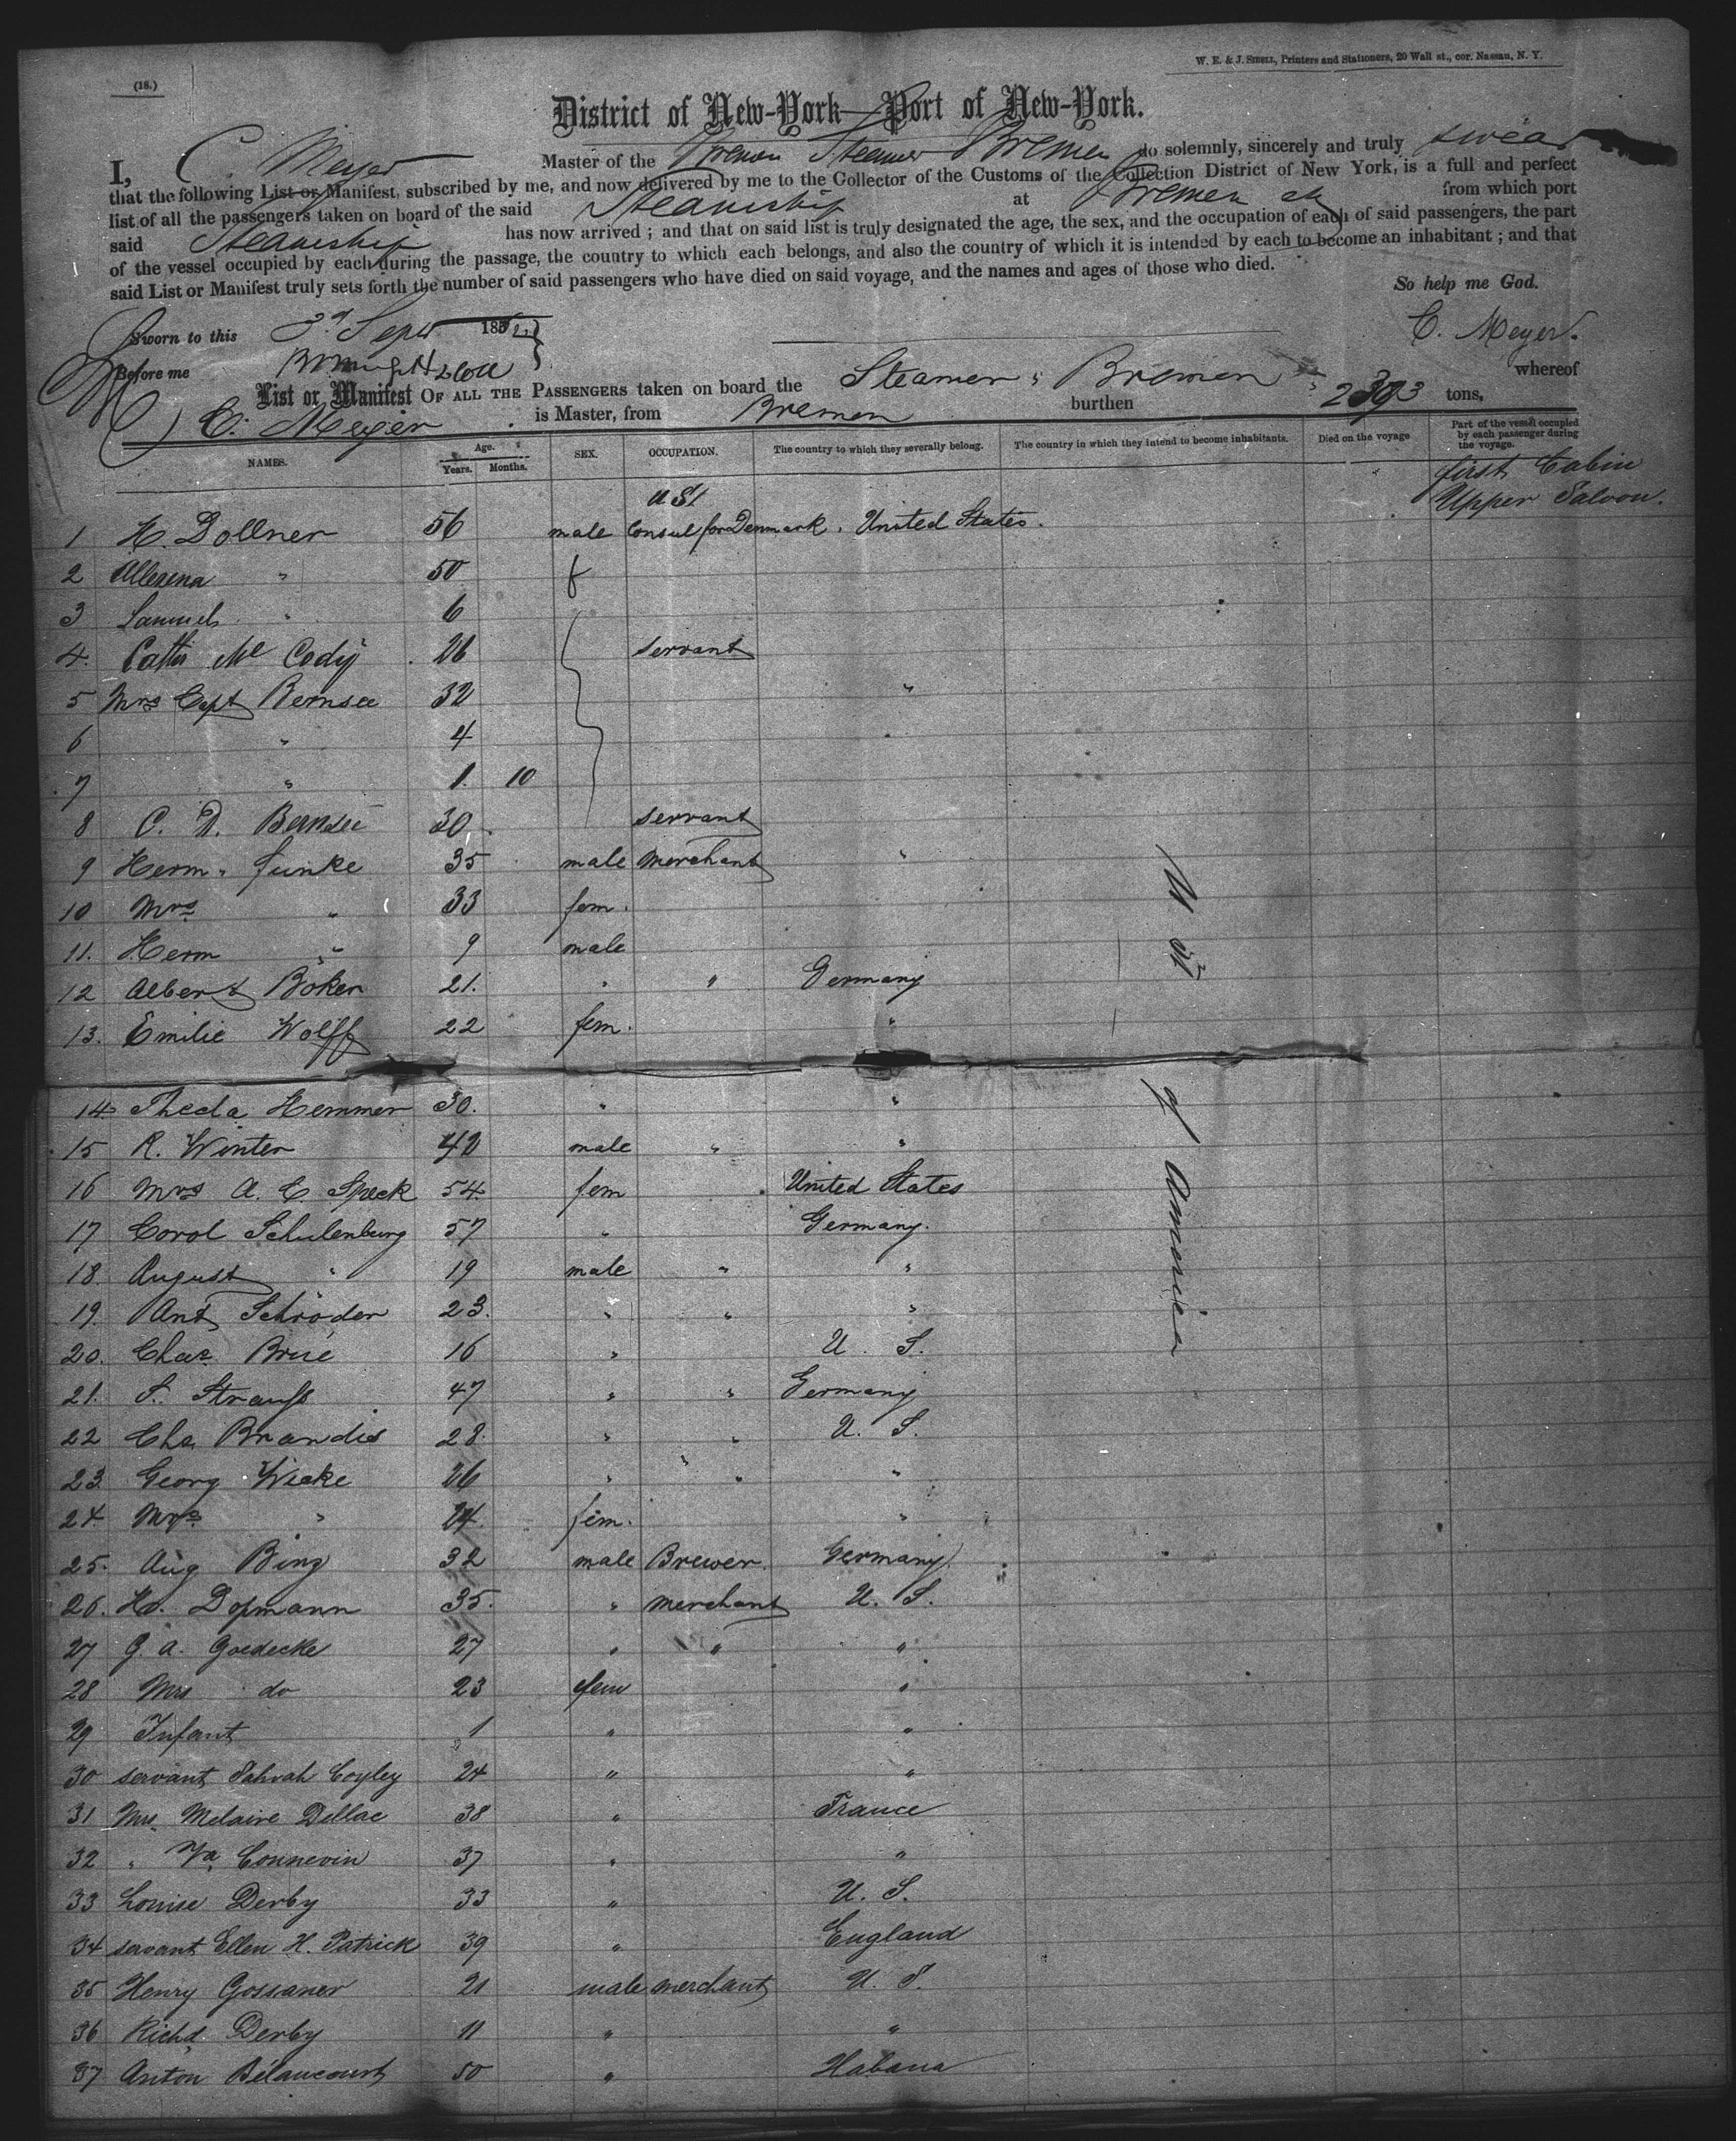 (18.)
W. E. & J. SIBELL, Printers and Stationers, 20 Wall st., cor. Nassau, N. Y.
District of New-York—Port of New-York.
I, C. Meyer Master of the Bremen Steamer Bremen do solemnly, sincerely and truly swear
that the following List or Manifest, subscribed by me, and now delivered by me to the Collector of the Customs of the Collection District of New York, is a full and perfect
list of all the passengers taken on board of the said Steamship at Bremen from which port
said Steamship has now arrived ; and that on said list is truly designated the age, the sex, and the occupation of each of said passengers, the part
of the vessel occupied by each during the passage, the country to which each belongs, and also the country of which it is intended by each to become an inhabitant ; and that
said List or Manifest truly sets forth the number of said passengers who have died on said voyage, and the names and ages of those who died.
So help me God.
Sworn to this 3d Sepr 186
C. Meyer.
Before me
List or Manifest OF ALL THE PASSENGERS taken on board the Steamer "Bremen" whereof
C. Meyer is Master, from Bremen burthen tons,
NAMES. Age. Years. Months. SEX. OCCUPATION. The country to which they severally belong. The country in which they intend to become inhabitants. Died on the voyage Part of the vessel occupied by each passenger during the voyage.
first Cabin
Upper Saloon.
U St
1 H. Dollner 56 male Consul for Denmark. United States.
2 " 50 f
3 Samuel " 6
4. Mc Cody 26 servant
5 Mrs Capt Bernsee 32 "
6 " 4 "
7 " 1. 10
8 C. D. Bernsee 30 servant
9 Herm. Funke 35 male merchant "
10 Mrs " 33 fem.
11. Herm " 9 male
12 Albert Böker 21. " " Germany
13. Emilie Wolff 22 fem. "
U St of America
14 Theda Hemmer 30. " "
15 R. Winter 42 male " "
16 Mrs A. C. Speck 54 fem United States
17 Corol Schulenburg 57 " Germany.
18. August " 19 male " "
19. Ant Schröder 23. " " "
20. Chas. Brüe 16 " U. S.
21. S. Strauß 47 " " Germany
22 Chs. Brandis 28 " " U. S.
23 Georg Wieke 26 " " "
24 Mrs. " 24 fem. "
25. Aug Bing 32 male Brewer. Germany.
26. Hr. Dopmann 35. " merchant U. S.
27 G. A. Goedecke 27 " " "
28 Mrs do 23 fem "
29 Infant 1 " "
30 servant Sahrah Coyley 24 " "
31 Mrs. Melaire Dellac 38 " France
32 " Va. Connevin 37 " "
33 Louise Derby 33 " U. S.
34 servant Ellen H. Patrick 39 " England
35 Henry Gossaner 21 male merchant U. S.
36 Richd. Derby 11 " "
37 Anton Bélancourt 50 " Habana